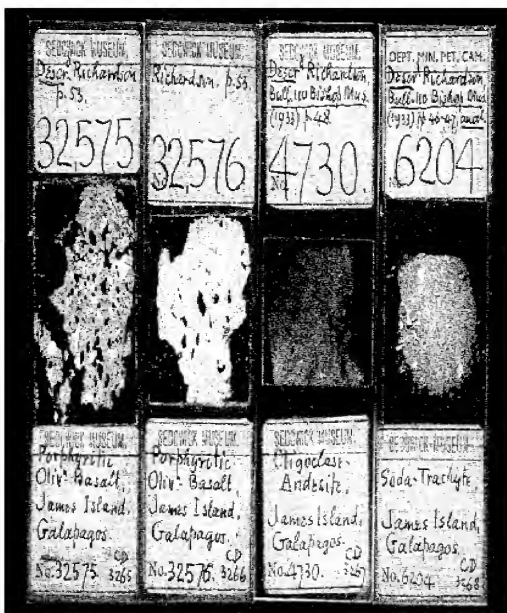 SEDGWICK MUSEUM.
Descr. Richardson
p.53.
32,575
SEDGWICK MUSEUM.
Richardson. p.53.
No. 32,576
SEDGWICK MUSEUM.
Descr. Richardson,
Bull. 110 Bishop Mus.
(1933) p.48.
No. 4730.
DEPT. MIN. PET. CAM.
Descr. Richardson
Bull. 110 Bishop Mus.
(1933) pp 46-47, anal.
6204
SEDGWICK MUSEUM.
Porphyritic
Oliv. Basalt,
James Island,
Galapagos.
CD
No. 32575. 3265
SEDGWICK MUSEUM.
Porphyritic
Oliv. Basalt,
James Island,
Galapagos.
CD
No. 32576. 3266
SEDGWICK MUSEUM.
Oligoclase-
Andesite,
James Island,
Galapagos.
CD
No. 4730. 3267
SEDGWICK MUSEUM.
Soda-Trachyte
James Island,
Galapagos.
CD
No. 6204 3268